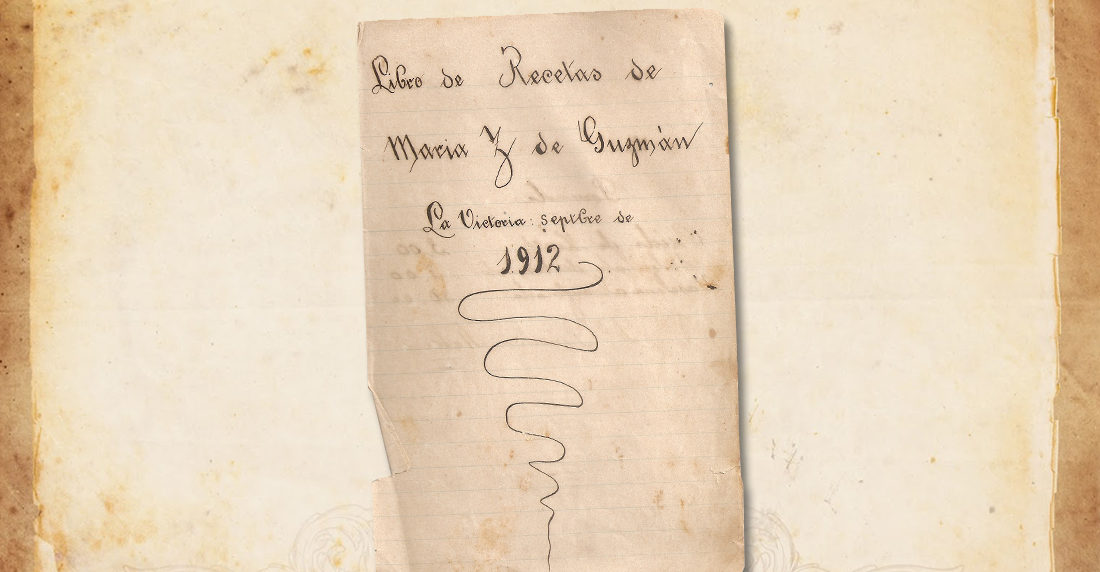 Libro de Recetas de
Maria Z de Guzmán
La Victoria: septbre de
1912